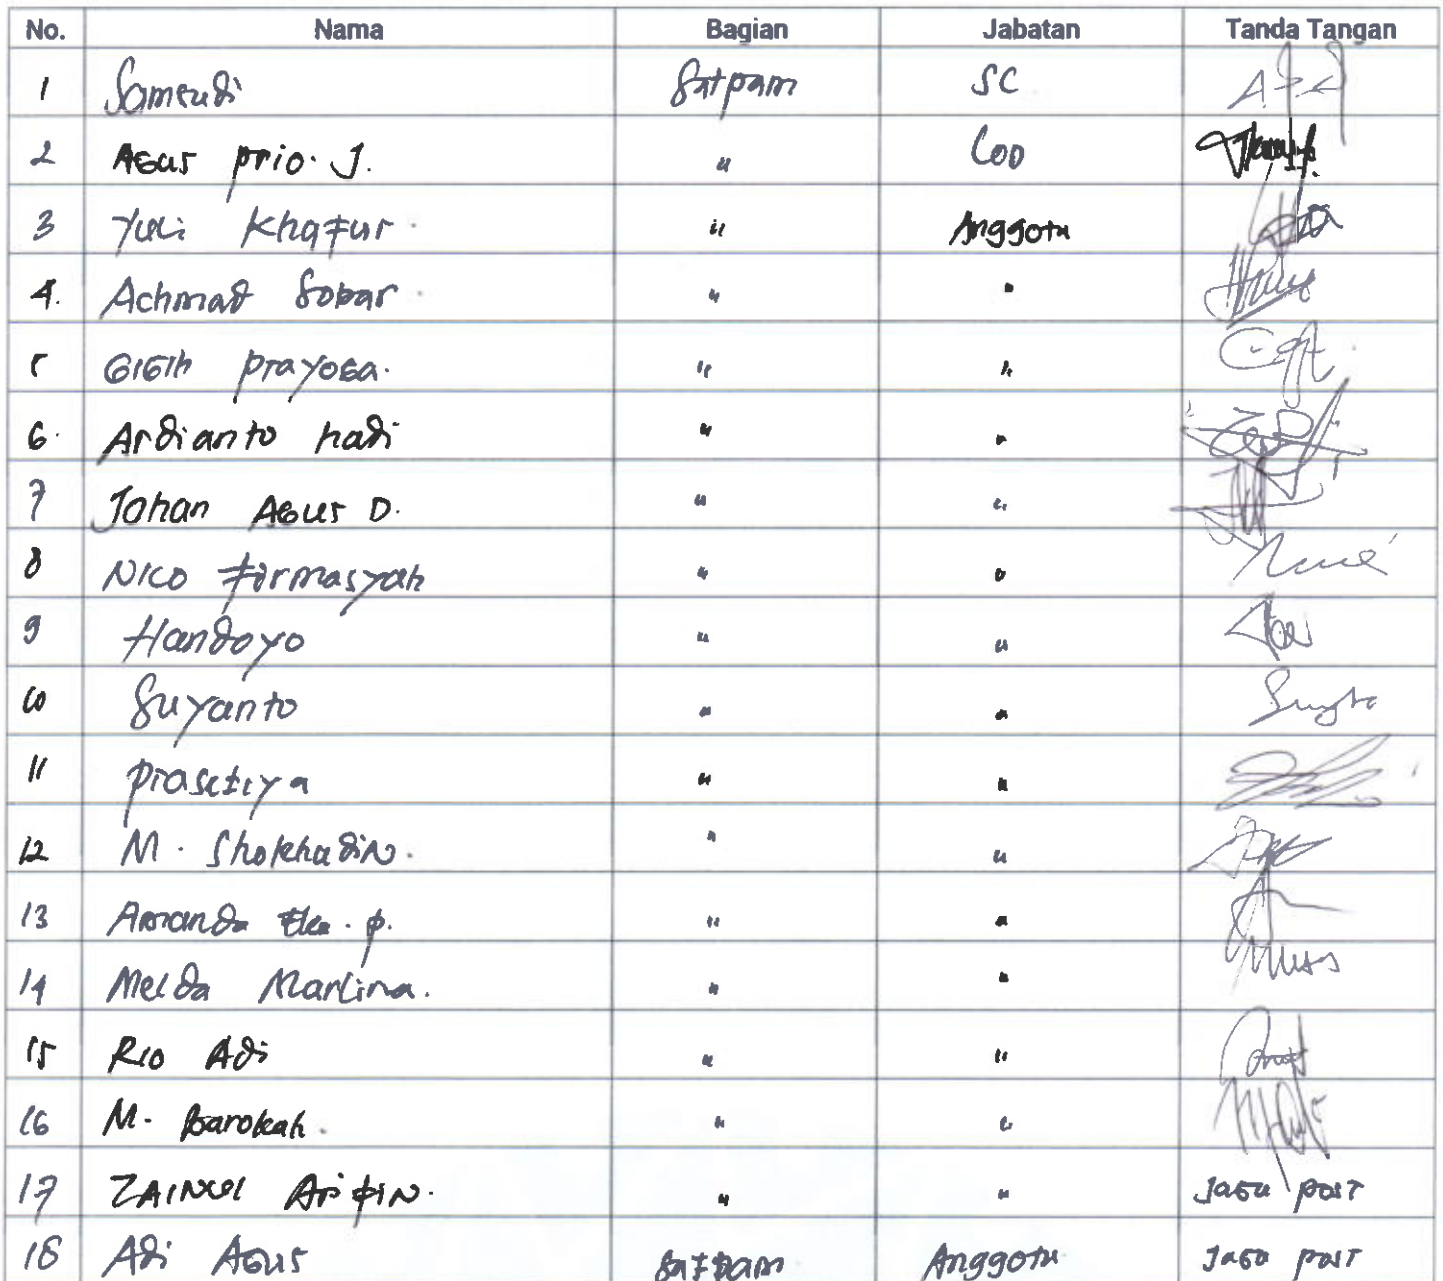 No. Nama Bagian Jabatan Tanda Tangan
1 Samsudi Satpam SC
2 Agus prio. J. " COD
3 Yuli Khafur. " Anggota
4. Achmad Sobar. " "
5 GIGIH Prayoga. " "
6. Ardianto hadi " "
7 Johan Agus D. " "
8 NICO Firmasyah " "
9 Handoyo " "
10 Suyanto " "
11 Prasetiya " "
12 M. Shokhadin. " "
13 Amanda Eka. P. " "
14 Melda Marlina. " "
15 Rio Adi " "
16 M. Barokah. " "
17 ZAINUL Arifin. " " Jaga post
18 Adi Agus Satpam Anggota Jaga post